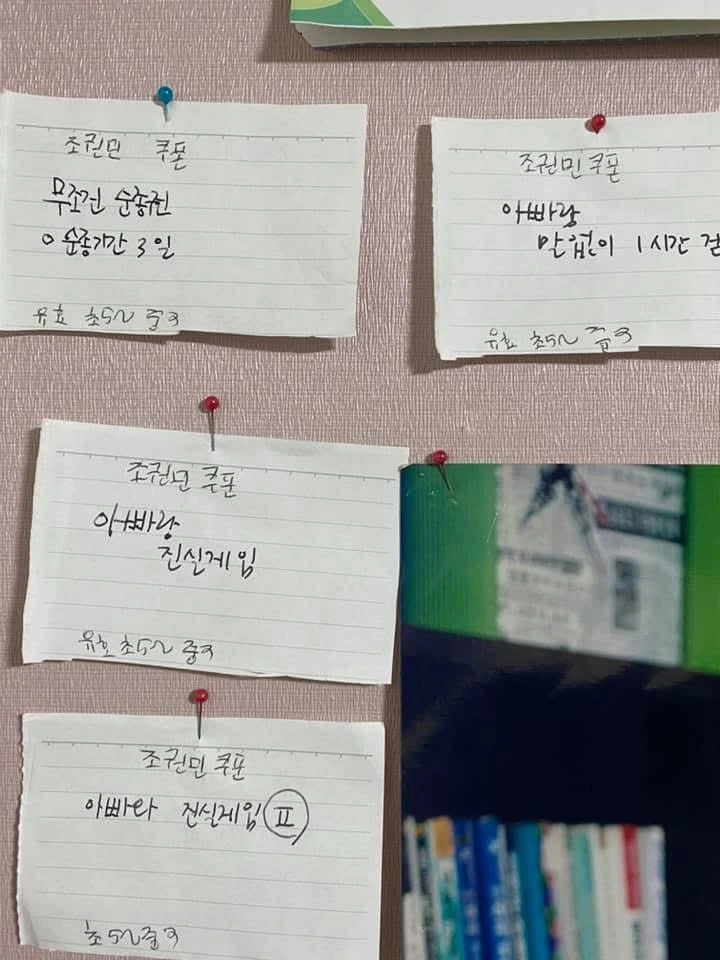 조권민 쿠폰
무조건 순종권
○ 순종기간 3일
유효 초5~중3
조권민 쿠폰
아빠랑
말없이 1시간 걷
유효 초5~중3
조권민 쿠폰
아빠랑
진실게임
유효 초5~중3
조권민 쿠폰
아빠랑 진실게임 Ⅱ
초5~중3